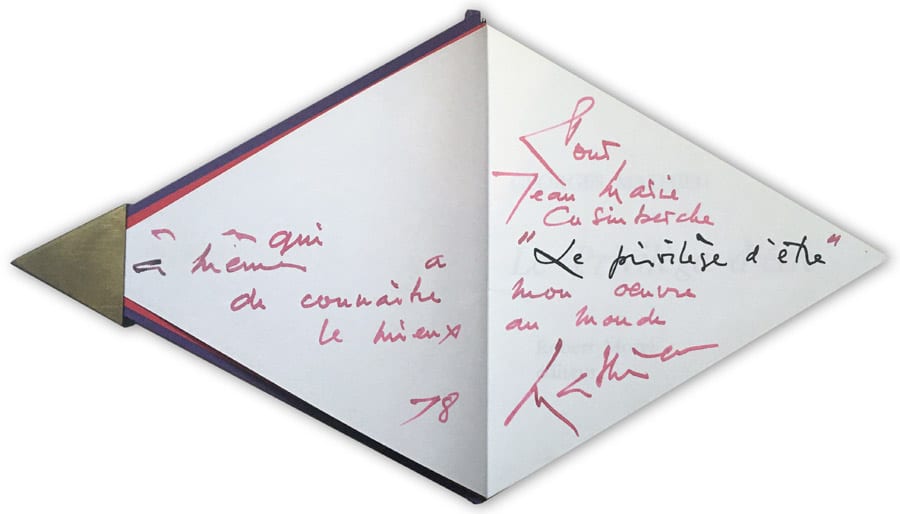 qui
à même a
de connaître
le mieux
78
Pour
Jean Marie
Cusinberche
"Le privilège d'être"
mon oeuvre
au monde
Mathieu